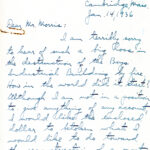 Cambridge, Mass
Jan. 14, 1936
Dear Mr Morris:
I am terribly sorry
to hear of such a big loss in
the destruction of the Boys
Industrial Building by fire
How in the world did it start?
Although I am not in a position
to do anything of any account
I would like the enclosed
dollar to
would like to do toward